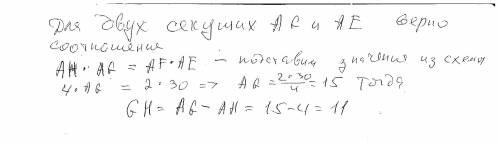 Для двух секущих AG и AE верно
соотношение
AH·AG = AF·AE – подставим значения из схемы
4·AG = 2·30 => AG = 2·30/4 = 15 Тогда
GH = AG – AH = 15-4 = 11